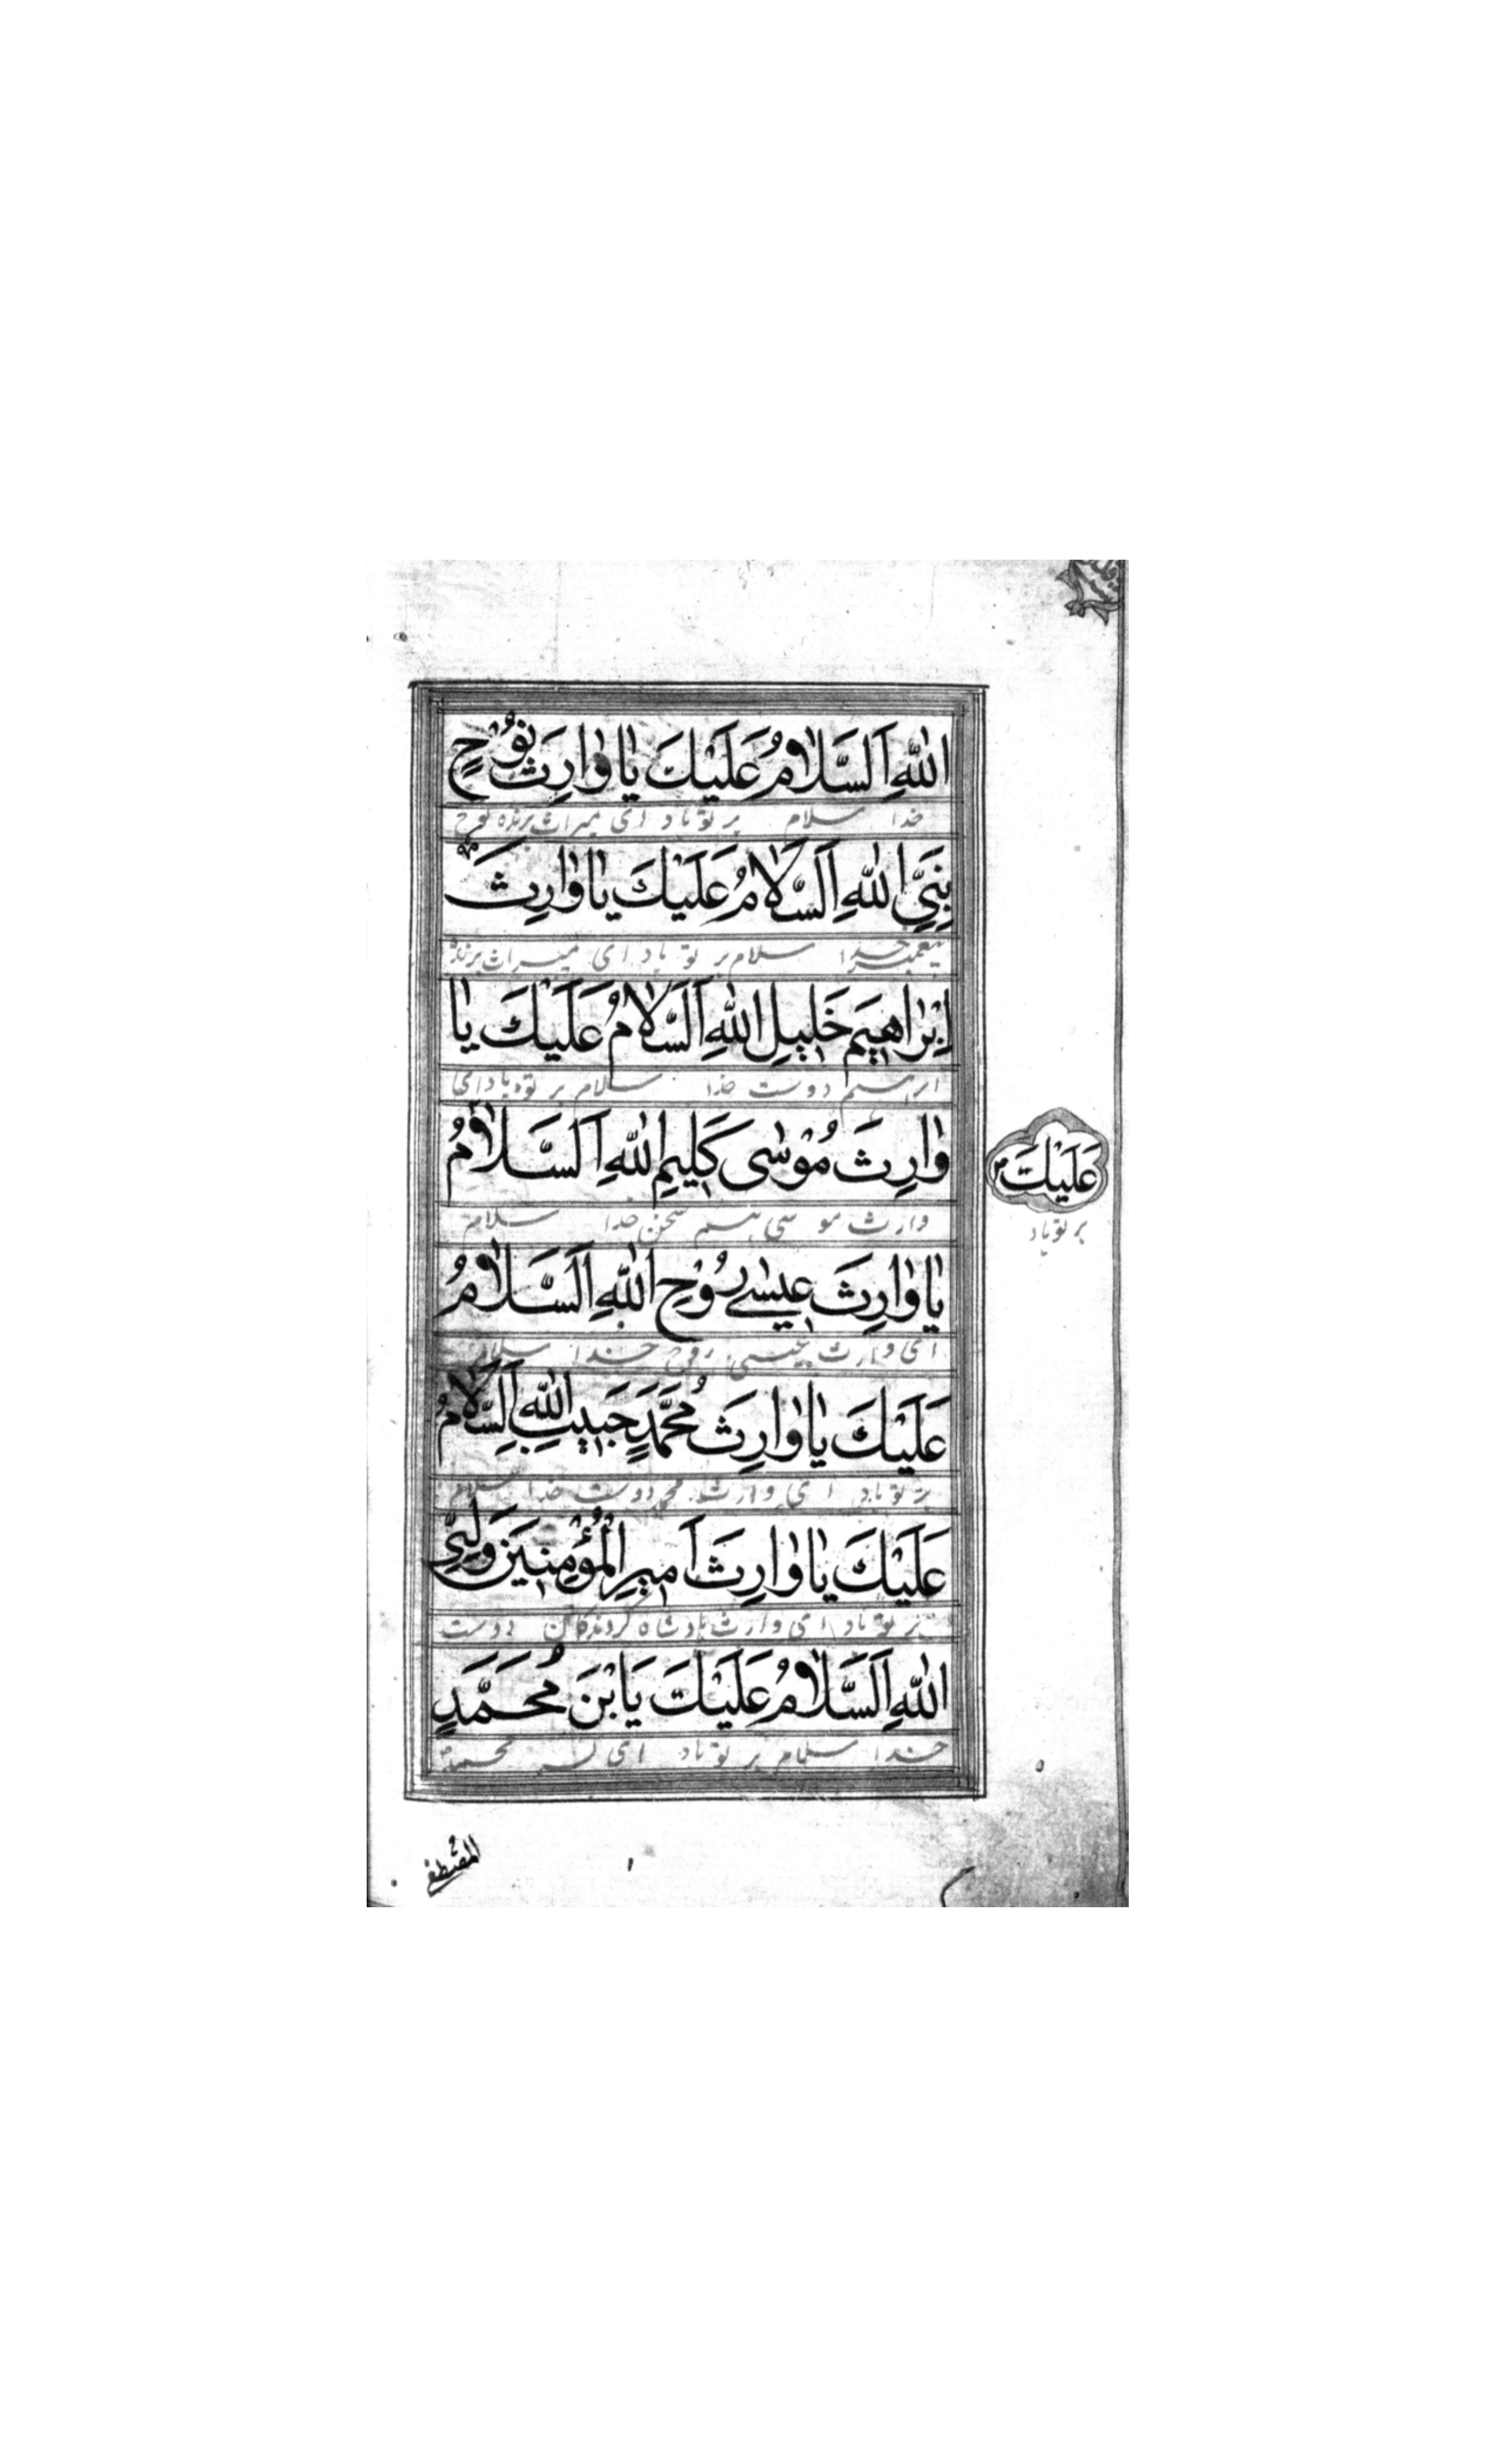 اللّٰهِ اَلسَّلامُ عَلَيْكَ يا وارِثَ نُوْحٍ
خدا سلام بر تو باد ای میراث برنده نوح
نَبِيِّ اللّٰهِ اَلسَّلامُ عَلَيْكَ يا وارِثَ
پیغمبر خدا سلام بر تو باد ای میراث برنده
اِبْراهيمَ خَليلِ اللّٰهِ اَلسَّلامُ عَلَيْكَ يا
ابراهیم دوست خدا سلام بر تو باد ای
وارِثَ مُوْسٰى كَليمِ اللّٰهِ اَلسَّلامُ
وارث موسی هم سخن خدا سلام
عَلَيْكَ
بر تو باد
يا وارِثَ عيسٰى رُوْحِ اللّٰهِ اَلسَّلامُ
ای وارث عیسی روح خدا سلام
عَلَيْكَ يا وارِثَ مُحَمَّدٍ حَبيبِ اللّٰهِ اَلسَّلامُ
بر تو باد ای وارث محمد دوست خدا سلام
عَلَيْكَ يا وارِثَ اَميرِ الْمُؤْمِنينَ وَلِيِّ
بر تو باد ای وارث پادشاه دوست
اللّٰهِ اَلسَّلامُ عَلَيْكَ يَا بْنَ مُحَمَّدٍ
خدا سلام بر تو باد ای پسر محمد
المصطفى